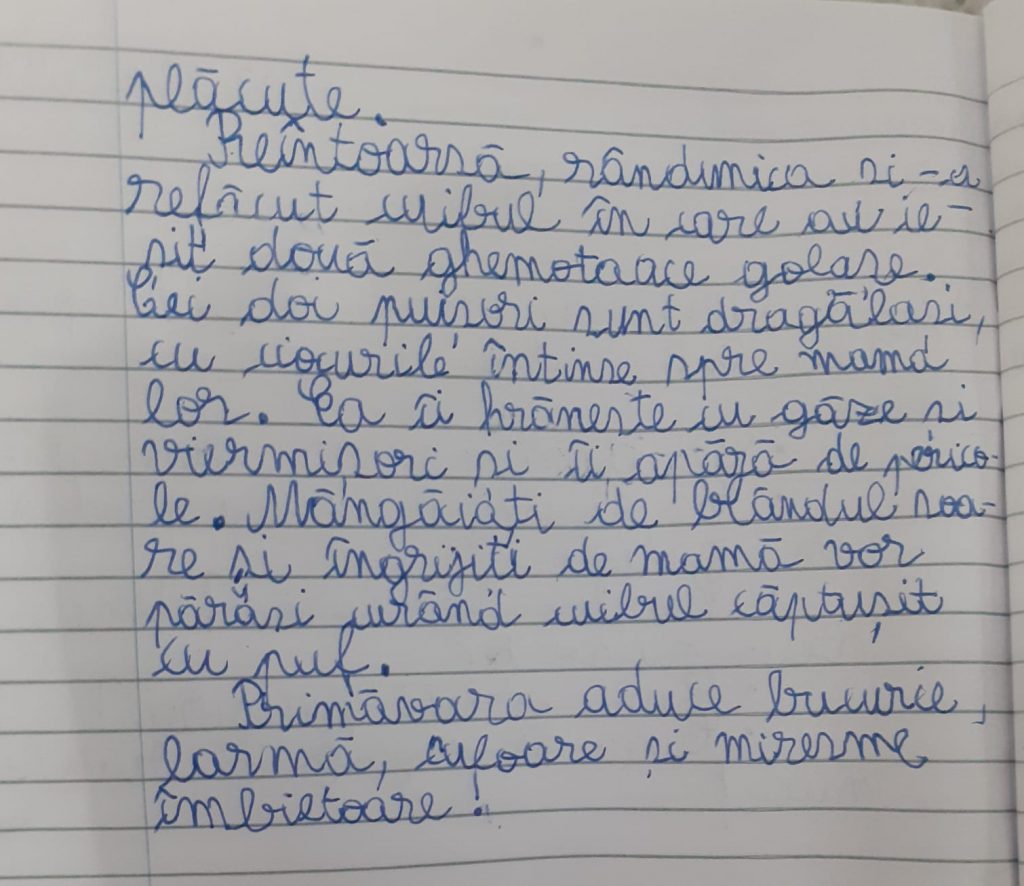 plăcute.
Reîntoarsă, rândunica si-a
refăcut cuibul în care au ie-
sit două ghemotoace golase.
Cei doi puisori sunt dragălasi,
cu ciocurile întinse spre mama
lor. Ea îi hrăneste cu gâze si
viermisori si îi apără de perico-
le. Mângâiați de blândul soa-
re și îngrijiti de mamă vor
părăsi curând cuibul căptușit
cu puf.
Primăvara aduce bucurie,
larmă, culoare și miresme
îmbietoare!